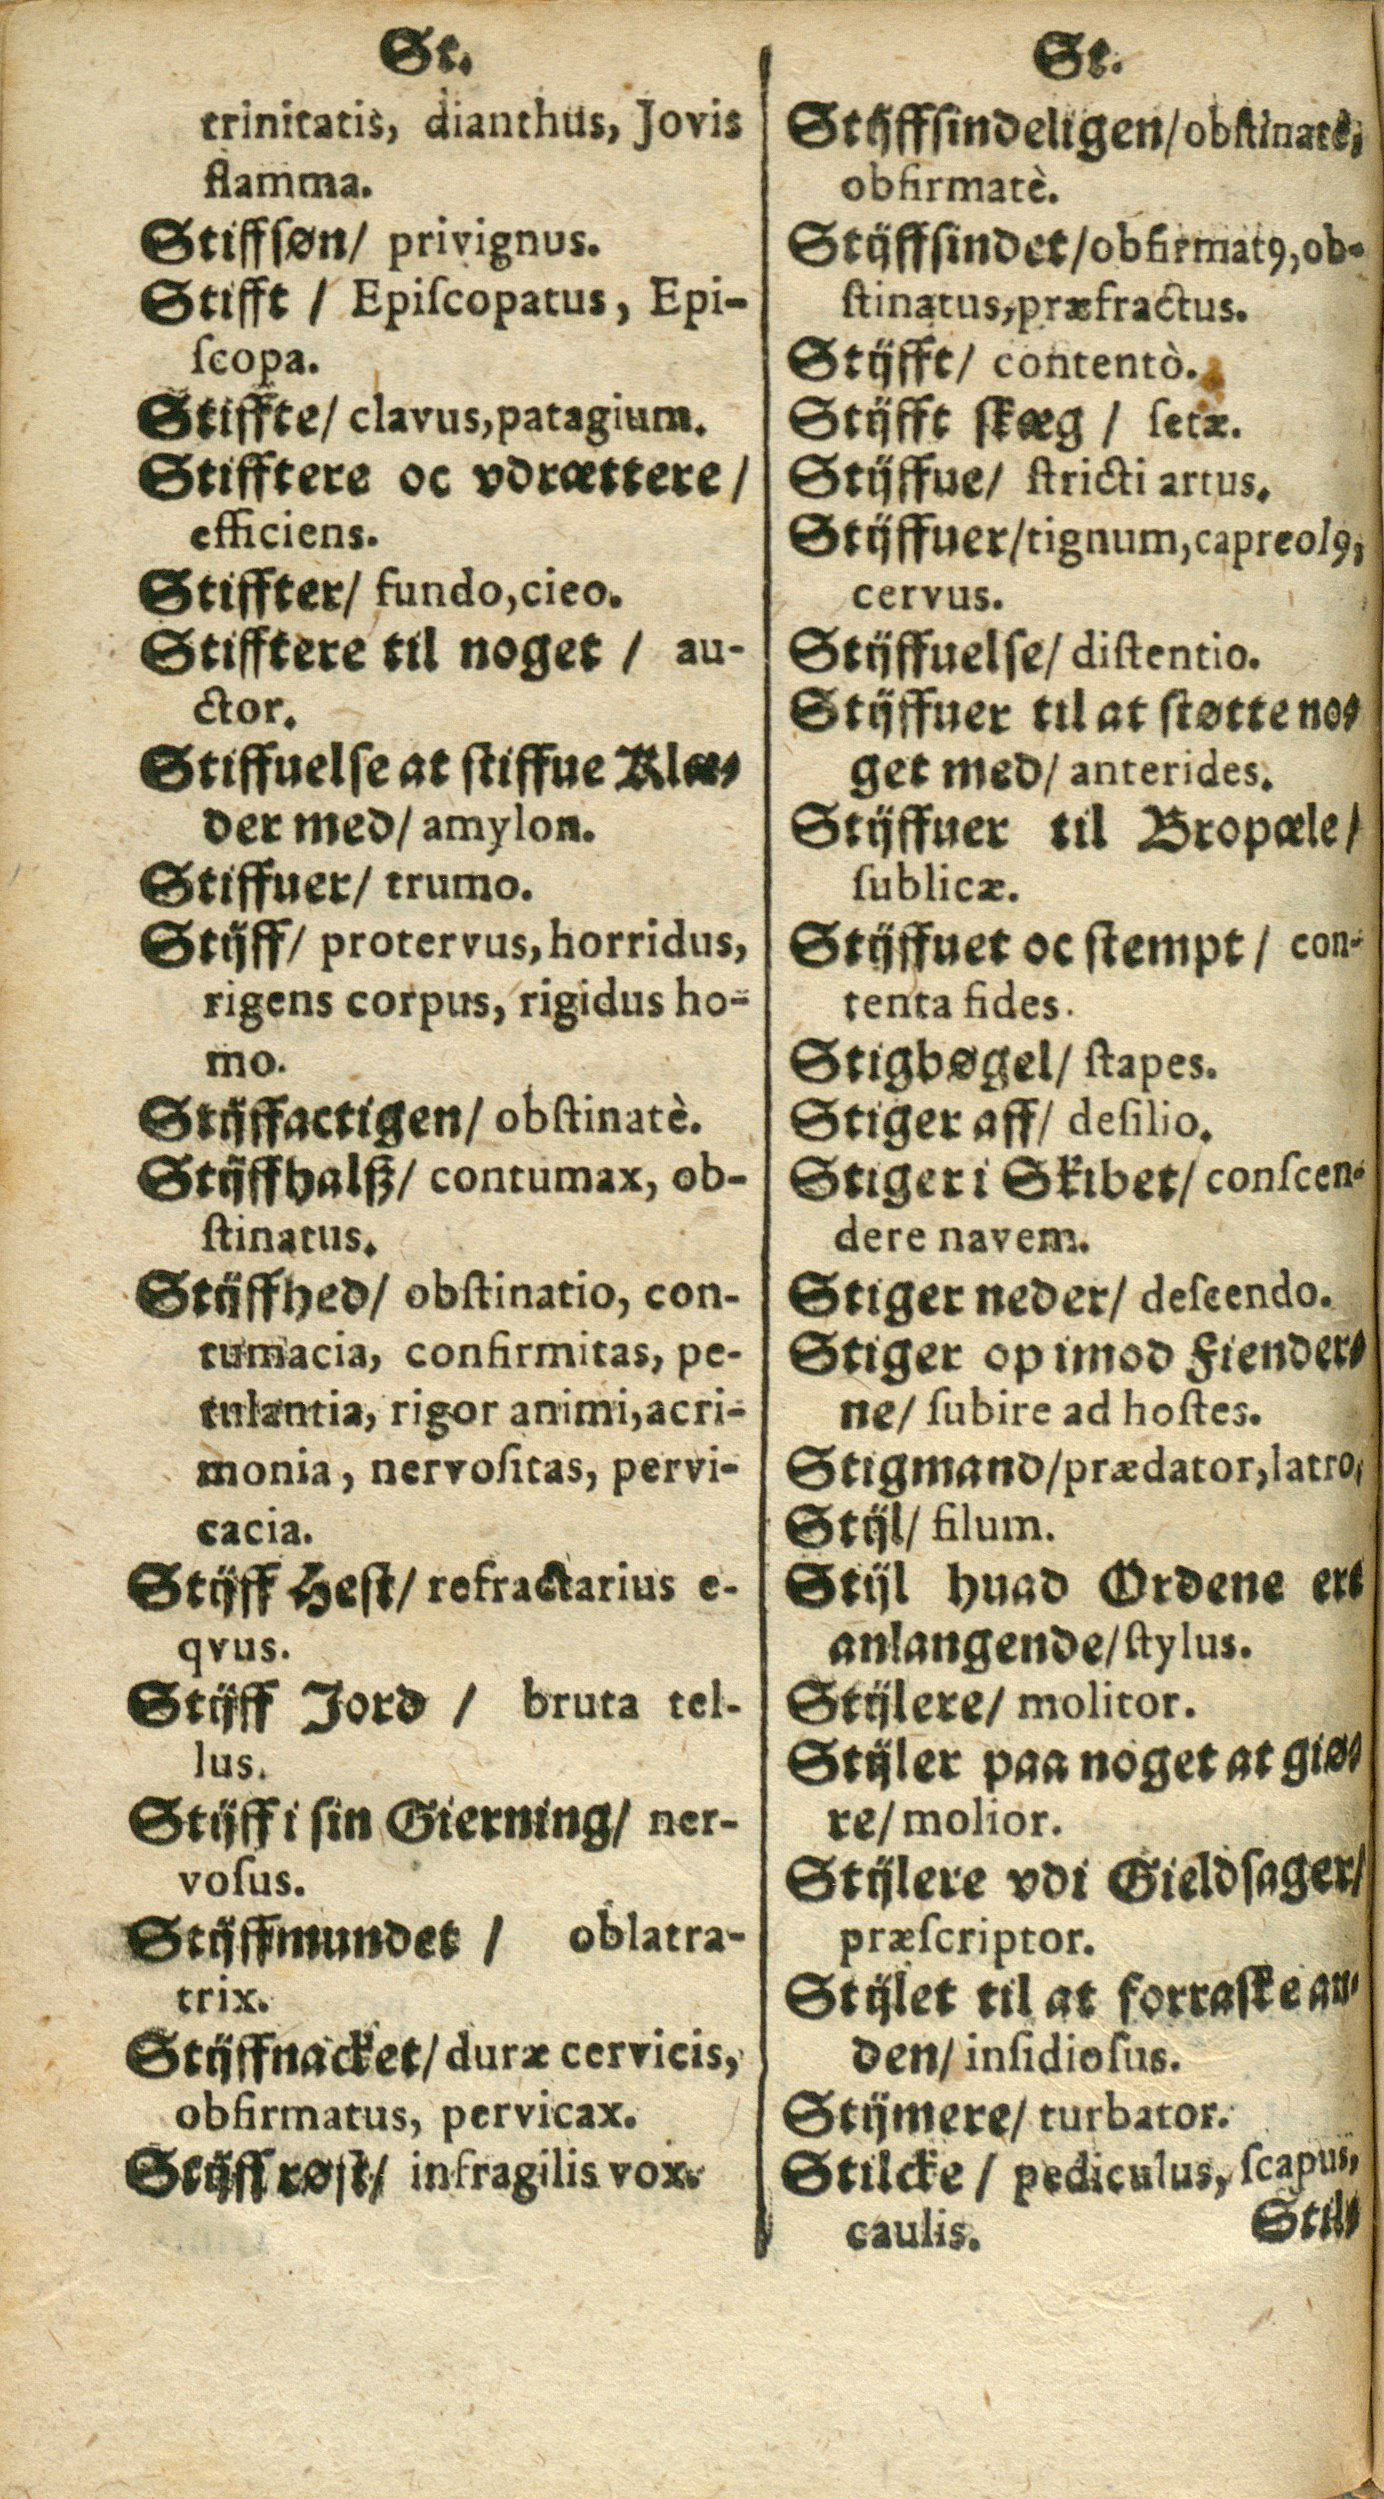 St.
trinitatis, dianthus, Jovis
flamma.
Stiffsøn/ privignus.
Stifft / Epiſcopatus, Epi-
ſcopa.
Stiffte/ clavus, patagium.
Stifftere oc vdrættere/
efficiens.
Stiffter/ fundo, cieo.
Stifftere til noget / au-
ctor.
Stiffuelſe at ſtiffue Klæ-
der med/ amylon.
Stiffuer/ trumo.
Stijff/ protervus, horridus,
rigens corpus, rigidus ho-
mo.
Stijffactigen/ obſtinatè.
Stijffhalß/ contumax, ob-
ſtinatus.
Stijffhed/ obſtinatio, con-
tumacia, confirmitas, pe-
tulantia, rigor animi, acri-
monia, nervoſitas, pervi-
cacia.
Stijff Heſt/ refractarius e-
qvus.
Stijff Jord / bruta tel-
lus.
Stijff i ſin Gierning/ ner-
voſus.
Stijffmundet / oblatra-
trix.
Stijffnacket/ duræ cervicis,
obfirmatus, pervicax.
Stijff røſt/ infragilis vox.
St.
Stijffſindeligen/ obſtinatè,
obfirmatè.
Stijffſindet/ obfirmatꝯ, ob-
ſtinatus, præfractus.
Stijfft/ contentò.
Stijfft ſkæg / ſetæ.
Stijffue/ ſtricti artus.
Stijffuer/ tignum, capreolꝯ,
cervus.
Stijffuelſe/ diſtentio.
Stijffuer til at ſtøtte no-
get med/ anterides.
Stijffuer til Bropæle/
ſublicæ.
Stijffuet oc ſtempt / con-
tenta fides.
Stigbøgel/ ſtapes.
Stiger aff/ deſilio.
Stiger i Skibet/ conſcen-
dere navem.
Stiger neder/ deſcendo.
Stiger op imod Fiender-
ne/ ſubire ad hoſtes.
Stigmand/ prædator, latro,
Stijl/ filum.
Stijl huad Ordene ere
anlangende/ ſtylus.
Stijlere/ molitor.
Stijler paa noget at giø-
re/ molior.
Stijlere vdi Gieldſager/
præſcriptor.
Stijlet til at forraſke an-
den/ inſidioſus.
Stijmere/ turbator.
Stilcke / pediculus, ſcapus,
caulis.
Stil-